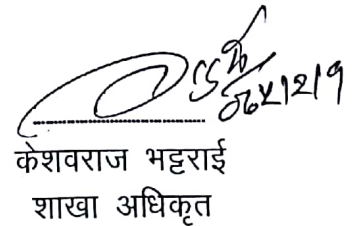 केशवराज भट्टराई
शाखा अधिकृत